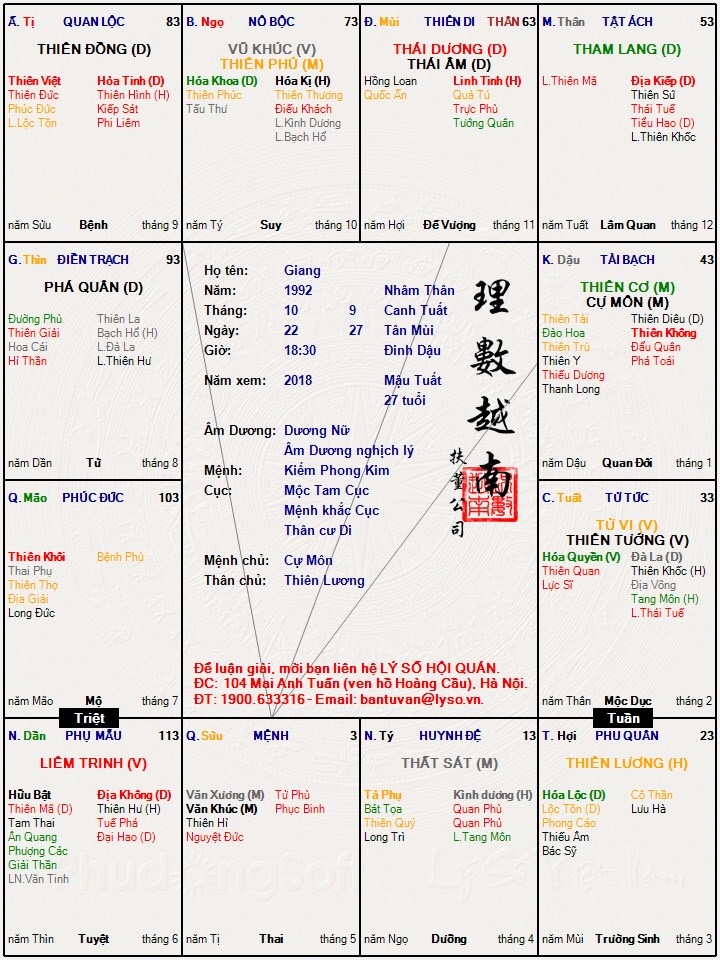 Ấ. Tị QUAN LỘC 83
THIÊN ĐỒNG (D)
Thiên Việt Hỏa Tinh (D)
Thiên Đức Thiên Hình (H)
Phúc Đức Kiếp Sát
L.Lộc Tồn Phi Liêm
năm Sửu Bệnh tháng 9
B. Ngọ NÔ BỘC 73
VŨ KHÚC (V)
THIÊN PHỦ (M)
Hóa Khoa (D) Hóa Kị (H)
Thiên Phúc Thiên Thương
Tấu Thư Điếu Khách
L.Kình Dương
L.Bạch Hổ
năm Tý Suy tháng 10
Đ. Mùi THIÊN DI THÂN 63
THÁI DƯƠNG (D)
THÁI ÂM (D)
Hồng Loan Linh Tinh (H)
Quốc Ấn Quả Tú
Trực Phù
Tướng Quân
năm Hợi Đế Vượng tháng 11
M. Thân TẬT ÁCH 53
THAM LANG (D)
L.Thiên Mã Địa Kiếp (D)
Thiên Sứ
Thái Tuế
Tiểu Hao (D)
L.Thiên Khốc
năm Tuất Lâm Quan tháng 12
G. Thìn ĐIỀN TRẠCH 93
PHÁ QUÂN (D)
Đường Phù Thiên La
Thiên Giải Bạch Hổ (H)
Hoa Cái L.Đà La
Hỉ Thần L.Thiên Hư
năm Dần Tử tháng 8
Họ tên: Giang
Năm: 1992 Nhâm Thân
Tháng: 10 9 Canh Tuất
Ngày: 22 27 Tân Mùi
Giờ: 18:30 Đinh Dậu
Năm xem: 2018 Mậu Tuất
27 tuổi
Âm Dương: Dương Nữ
Âm Dương nghịch lý
Mệnh: Kiếm Phong Kim
Cục: Mộc Tam Cục
Mệnh khắc Cục
Thân cư Di
Mệnh chủ: Cự Môn
Thân chủ: Thiên Lương
理數越南
扶董公司
Để luận giải, mời bạn liên hệ LÝ SỐ HỘI QUÁN.
ĐC: 104 Mai Anh Tuấn (ven hồ Hoàng Cầu), Hà Nội.
ĐT: 1900.633316 - Email: bantuvan@lyso.vn.
K. Dậu TÀI BẠCH 43
THIÊN CƠ (M)
CỰ MÔN (M)
Thiên Tài Thiên Diêu (D)
Đào Hoa Thiên Không
Thiên Trù Đẩu Quân
Thiên Y Phá Toái
Thiếu Dương
Thanh Long
năm Dậu Quan Đới tháng 1
Q. Mão PHÚC ĐỨC 103
Thiên Khôi Bệnh Phù
Thai Phụ
Thiên Thọ
Địa Giải
Long Đức
năm Mão Mộ tháng 7
C. Tuất TỬ TỨC 33
TỬ VI (V)
THIÊN TƯỚNG (V)
Hóa Quyền (V) Đà La (D)
Thiên Quan Thiên Khốc (H)
Lực Sĩ Địa Võng
Tang Môn (H)
L.Thái Tuế
năm Thân Mộc Dục tháng 2
Triệt
Tuần
N. Dần PHỤ MẪU 113
LIÊM TRINH (V)
Hữu Bật Địa Không (D)
Thiên Mã (D) Thiên Hư (H)
Tam Thai Tuế Phá
Ân Quang Đại Hao (D)
Phượng Các
Giải Thần
LN.Văn Tinh
năm Thìn Tuyệt tháng 6
Q. Sửu MỆNH 3
Văn Xương (M) Tử Phù
Văn Khúc (M) Phục Binh
Thiên Hỉ
Nguyệt Đức
năm Tị Thai tháng 5
N. Tý HUYNH ĐỆ 13
THẤT SÁT (M)
Tả Phụ Kình dương (H)
Bát Tọa Quan Phù
Thiên Quý Quan Phủ
Long Trì L.Tang Môn
năm Ngọ Dưỡng tháng 4
T. Hợi PHU QUÂN 23
THIÊN LƯƠNG (H)
Hóa Lộc (D) Cô Thần
Lộc Tồn (D) Lưu Hà
Phong Cáo
Thiếu Âm
Bác Sỹ
năm Mùi Trường Sinh tháng 3